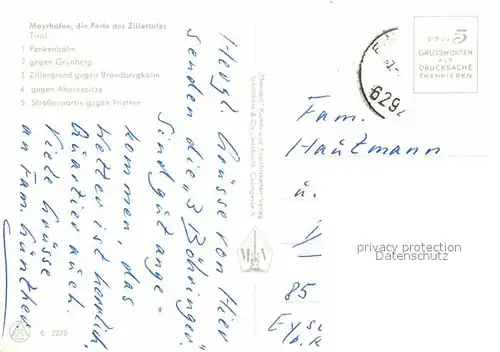 Mayrhofen, die Perle des Zillertales
Tirol
1 Penkenbahn
2 gegen Grünberg
3 Zillergrund gegen Brandbergkolm
4 gegen Ahornspitze
5 Straßenpartie gegen Tristner
Herzl. Grüsse von Hier
senden die "3 Böhringer".
Sind gut ange-
kommen, das
Wetter ist herrlich,
Quartier auch.
Viele Grüsse
an Fam. Günther
© 2270
M A
BIS ZU 5
GRUSSWORTEN
ALS
DRUCKSACHE
FRANKIEREN
629
Fam.
Hautzmann
u.
privacy protection
Datenschutz
85